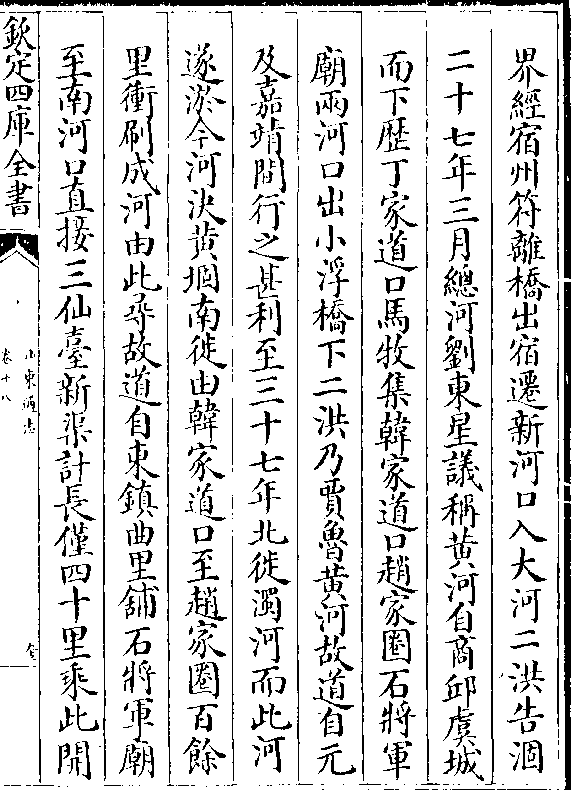 界經宿州符離橋出宿遷新河口入大河二洪告涸
二十七年三月總河劉東星議稱黄河自商邱虞城
而下歴丁家道口馬牧集韓家道口趙家圏石將軍
廟兩河口出小浮橋下二洪乃賈魯黄河故道自元
及嘉靖間行之甚利至三十七年北徙濁河而此河
遂淤今河決黄堌南徙由韓家道口至趙家圏百餘
里衝刷成河由此尋故道自東鎮曲里舖石將軍廟
至南河口直接三仙臺新渠計長僅四十里乘此開
欽定四庫全書
山東通志
卷十八